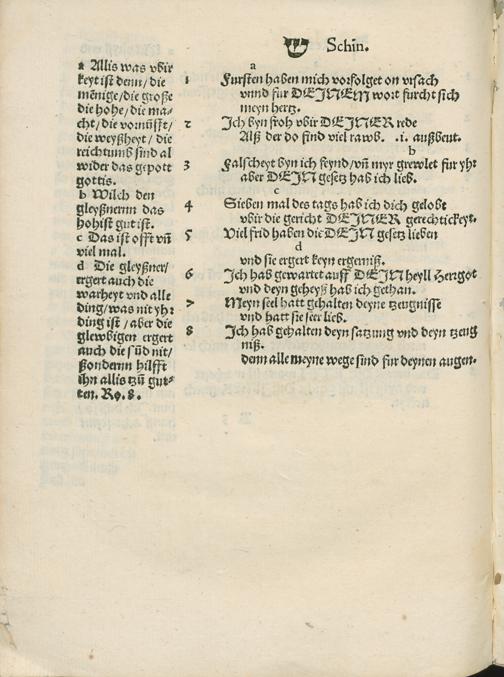 ש Schin.
a Allis was vbir
keyt ist denn/die
mēnige/die große
die hohe/die ma⸗
cht/die vornūfft/
die weyßheyt/die
reichtumb sind al
wider das gepott
gottis.
b Wilch den
gleyßnernn das
hohist gut ist.
c Das ist offt vñ
viel mal.
d Die gleyßner/
ergert auch die
warheyt vnd alle
ding/was nit yhr
ding ist/aber die
glewbigen ergert
auch die sūd nit/
ßondernn hilfft
ihn allis tzū gut⸗
ten. Ro. 8.
a
1 Fursten haben mich vorfolget on vrsach
vnnd fur DEJNEM wort furcht sich
meyn hertz.
2 Ich byn froh vbir DEJNER rede
Alß der do find viel rawb. .i. außbeut.
b
3 Falscheyt byn ich feynd/vñ myr grewlet fur yhr
aber DEJN gesetz hab ich lieb.
c
4 Sieben mal des tags hab ich dich gelobt
vbir die gericht DEJNER gerechtickeyt.
5 Viel frid haben die DEJN gesetz lieben
d
vnd sie ergert keyn ergerniß.
6 Ich hab gewartet auff DEJN heyll Herrgot
vnd deyn geheyß hab ich gethan.
7 Meyn seel hatt gehalten deyne tzeugnisse
vnd hatt sie seer lieb.
8 Ich hab gehalten deyn satzung vnd deyn tzeug
niß.
denn alle meyne wege sind fur deynen augen.